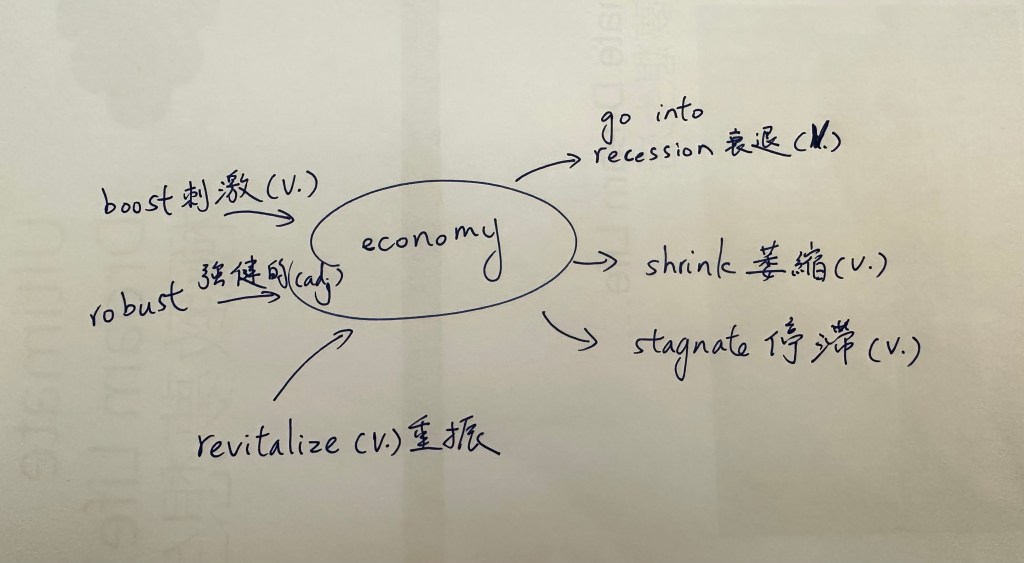 go into
recession 衰退 (V.)
boost 刺激 (V.)
economy
shrink 萎縮 (V.)
robust 強健的 (adj)
stagnate 停滯 (V.)
revitalize (V.) 重振
Ultimate
Dream Life